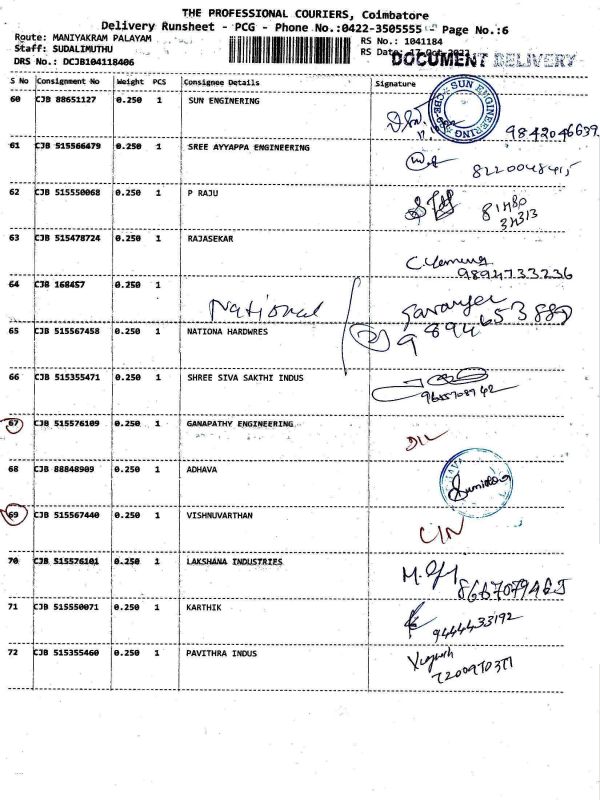 THE PROFESSIONAL COURIERS, Coimbatore
Delivery Runsheet - PCG - Phone No.:0422-3505555 - Page No.:6
Route: MANIYAKRAM PALAYAM RS No.: 1041184
Staff: SUDALIMUTHU RS Date: 17-Oct-2022
DOCUMENT DELIVERY
DRS No.: DCJB104118406
S No Consignment No Weight PCS Consignee Details Signature
60 CJB 88651127 0.250 1 SUN ENGINERING
SUN ENGINEERING CBE
9842046639
61 CJB 515566479 0.250 1 SREE AYYAPPA ENGINEERING
8220048415
62 CJB 515550068 0.250 1 P RAJU
81480
34313
63 CJB 515478724 0.250 1 RAJASEKAR
9894733236
64 CJB 168457 0.250 1
National
65 CJB 515567458 0.250 1 NATIONA HARDWRES
9894653880
66 CJB 515355471 0.250 1 SHREE SIVA SAKTHI INDUS
9655708942
67 CJB 515576109 0.250 1 GANAPATHY ENGINEERING
D/L
68 CJB 88848909 0.250 1 ADHAVA
69 CJB 515567440 0.250 1 VISHNUVARTHAN
C/N
70 CJB 515576101 0.250 1 LAKSHANA INDUSTRIES
8667079465
71 CJB 515550071 0.250 1 KARTHIK
9444433192
72 CJB 515355460 0.250 1 PAVITHRA INDUS
7200970371